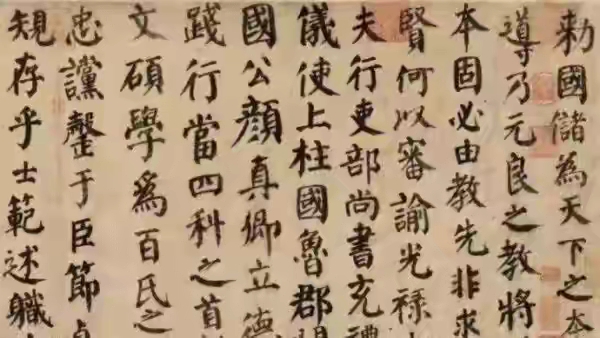 勑國儲為天下之本
導乃元良之教將
本固必由教先非求
賢何以審諭光祿
夫行吏部尚書充禮
儀使上柱國魯郡開
國公顏真卿立德
踐行當四科之首
文碩學爲百氏之
忠讜罄于臣節貞
規存乎士範述職